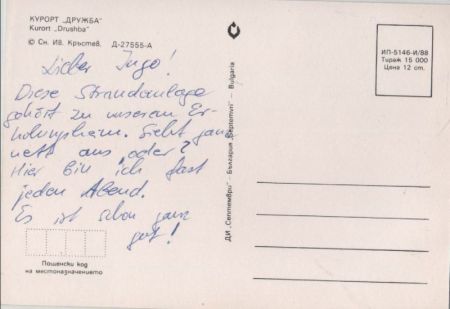 КУРОРТ „ДРУЖБА"
Kurort „Drushba"
© Сн. Ив. Кръстев. Д-27555-А
Lieber Ingo!
Diese Strandanlage
gehört zu unserem Er-
holungsheim. Sieht ganz
nett aus, oder?
Hier bin ich fast
jeden Abend.
Es ist schon ganz
gut!
Пощенски код
на местоназначението
ДИ „Септември" - България „Septemvri" - Bulgaria
ИП-5146-И/88
Тираж 15 000
Цена 12 ст.